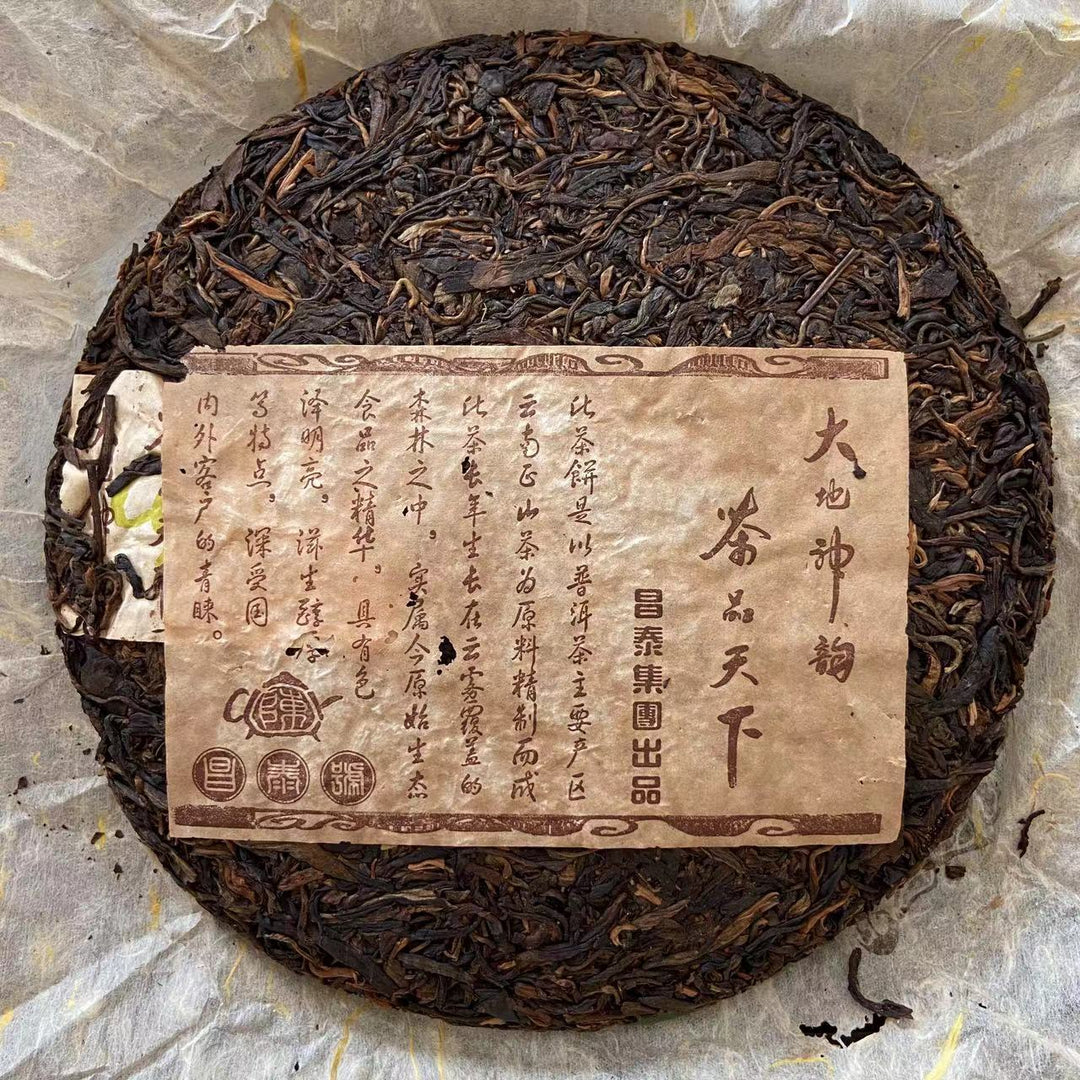 大地神韵
茶品天下
昌泰集團出品
此茶餅是以普洱茶主要产区
云南正山茶为原料精制而成
此茶长年生长在云雾覆盖的
森林之冲。实属今原始生态
食品之精华。具有色
泽明亮。滋生醇厚
等特点。深受国
内外客户的青睐。
陳
昌泰號